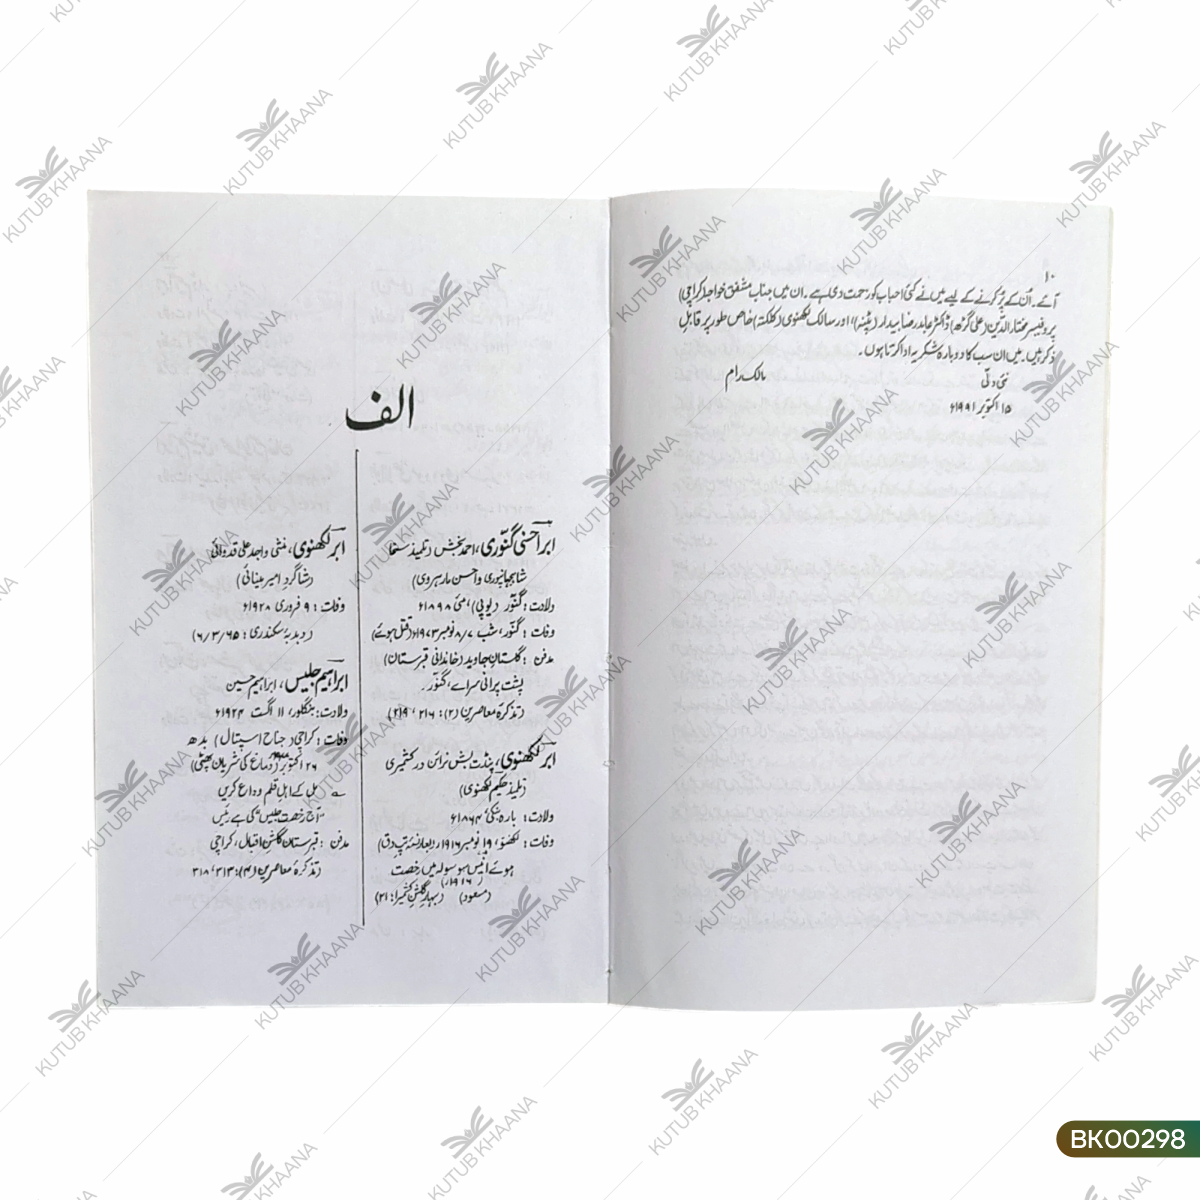 ۱۰
آئے۔ اُن کے پُر کرنے کے لیے میں نے کئی احباب کو زحمت دی ہے۔ ان میں جناب مشفق خواجہ (کراچی)
پروفیسر مختار الدّین (علی گڑھ) ڈاکٹر عابد رضا بیدار (پٹنہ)، اور سالک لکھنوی (کلکتہ) خاص طور پر قابلِ
ذکر ہیں۔ میں ان سب کا دوبارہ شکریہ ادا کرتا ہوں۔
نئی دلّی
مالک رام
۱۵ اکتوبر ۱۹۹۱ء
الف
ابر احسنی گنّوری، احمد بخش (تلمیذ سخا
شاہجہانپوری و احسن مارہروی)
ولادت: گنّور (یوپی)، مئی ۱۸۹۸ء
وفات: گنّور، شب ۷/۸ نومبر ۱۹۷۳ء (قتل ہوئے)
مدفن: گلستانِ جاوید (خاندانی قبرستان)
پشت پرانی سراے، گنّور۔
(تذکرۂ معاصرین (۲): ۲۱۶، ۲۱۹)
ابر لکھنوی، پنڈت بشن نرائن در کشمیری
(تلمیذ حکیم لکھنوی)
ولادت: بارہ بنکی ۱۸۶۴ء
وفات: لکھنؤ، ۱۹ نومبر ۱۹۱۶ء (بعارضۂ تپ دق)
ہوئے اُنیس سو سولہ میں رخصت
(۱۹۱۶ء)
(مسعود) (بہارِ گلشنِ کشمیر ۱: ۲۱)
ابر لکھنوی، منشی واجد علی قدوائی
(شاگردِ امیر مینائی)
وفات: ۹ فروری ۱۹۲۸ء
(دبدبۂ سکندری: ۶/۳/۶۵)
ابراہیم جلیس، ابراہیم حسین
ولادت: بنگلور، ۱۱ اگست ۱۹۲۴ء
وفات: کراچی (جناح اسپتال) بدھ
۲۶ اکتوبر (دماغ کی شریان پھٹی)
ے مل کے اہلِ قلم وداع کریں
"آج رخصت جلیس" کی ہے رئیس
مدفن: قبرستان گلشنِ اقبال، کراچی
(تذکرۂ معاصرین (۴): ۲۱۳، ۲۱۸)
KUTUB KHAANA
BK00298